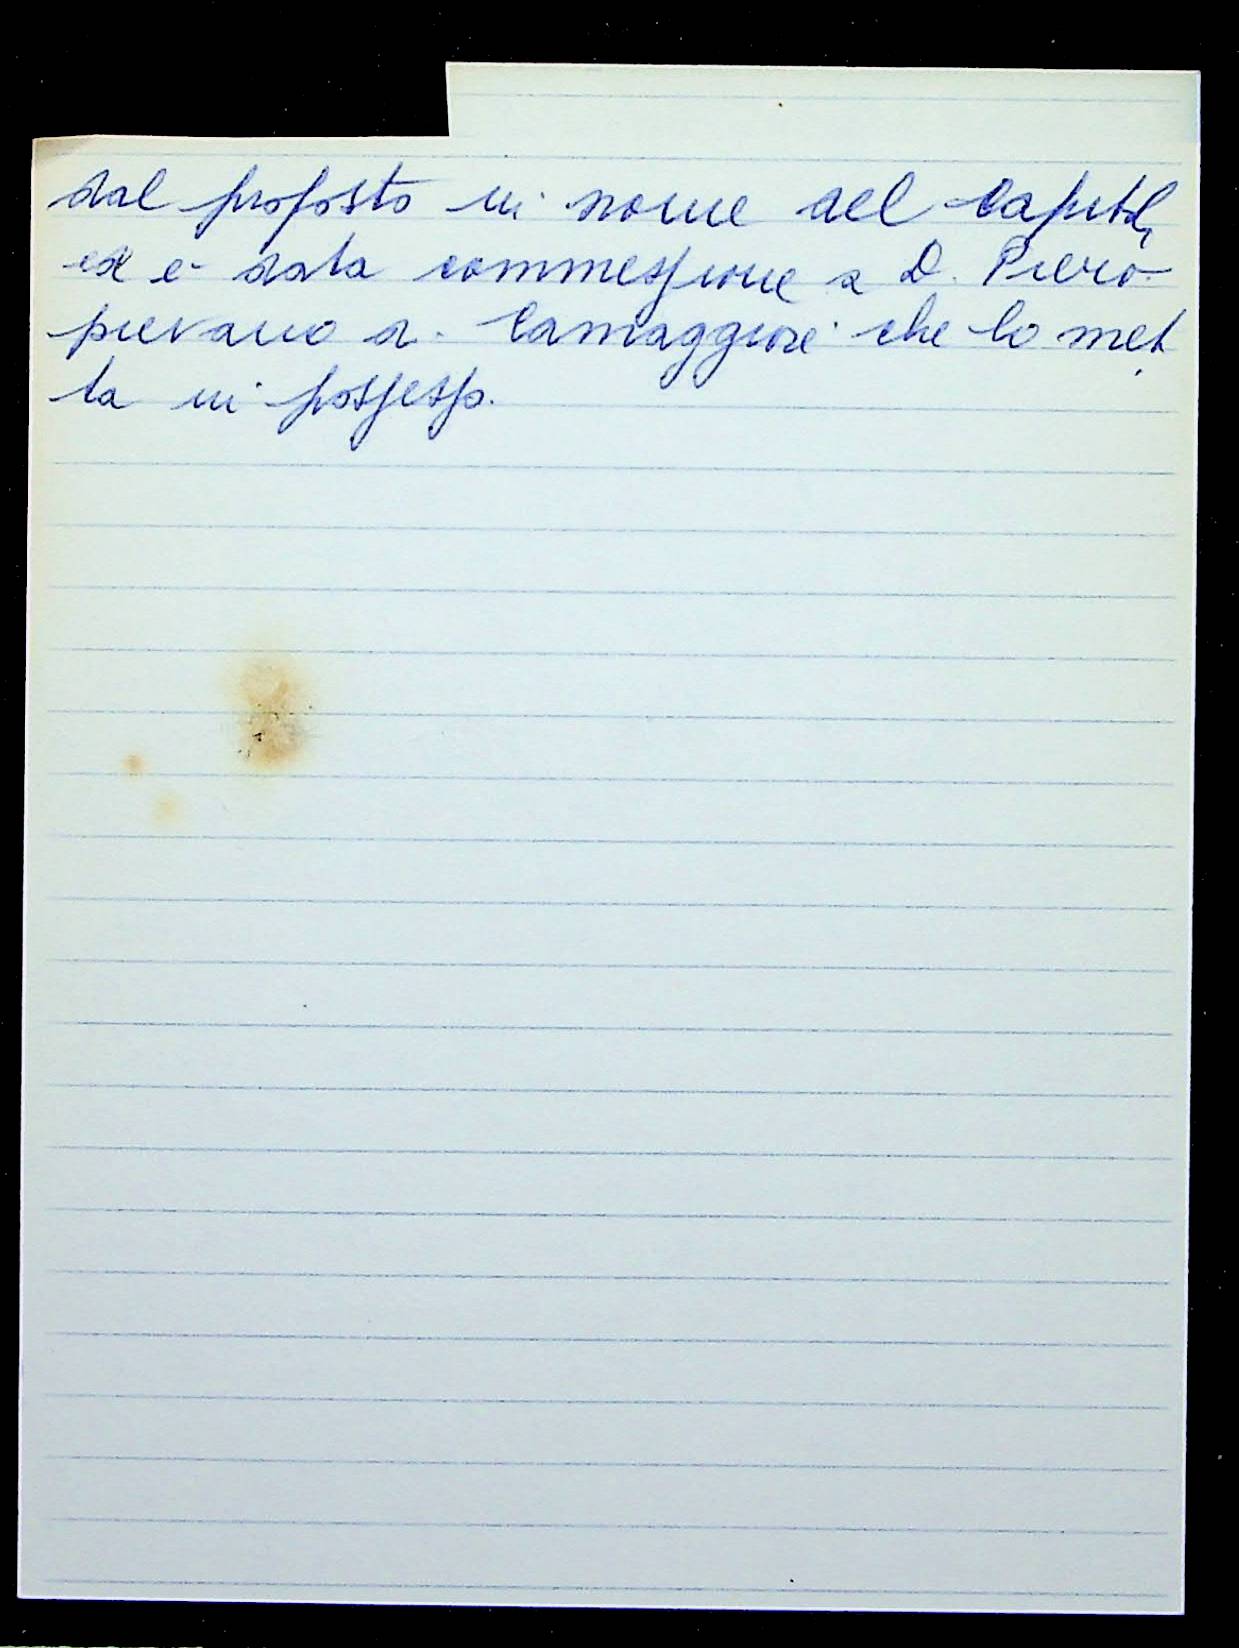 dal proposto in nome del Capitol,
ed e data commessione a D. Piero
pievano di Camaggiore che lo met
ta in possesso.